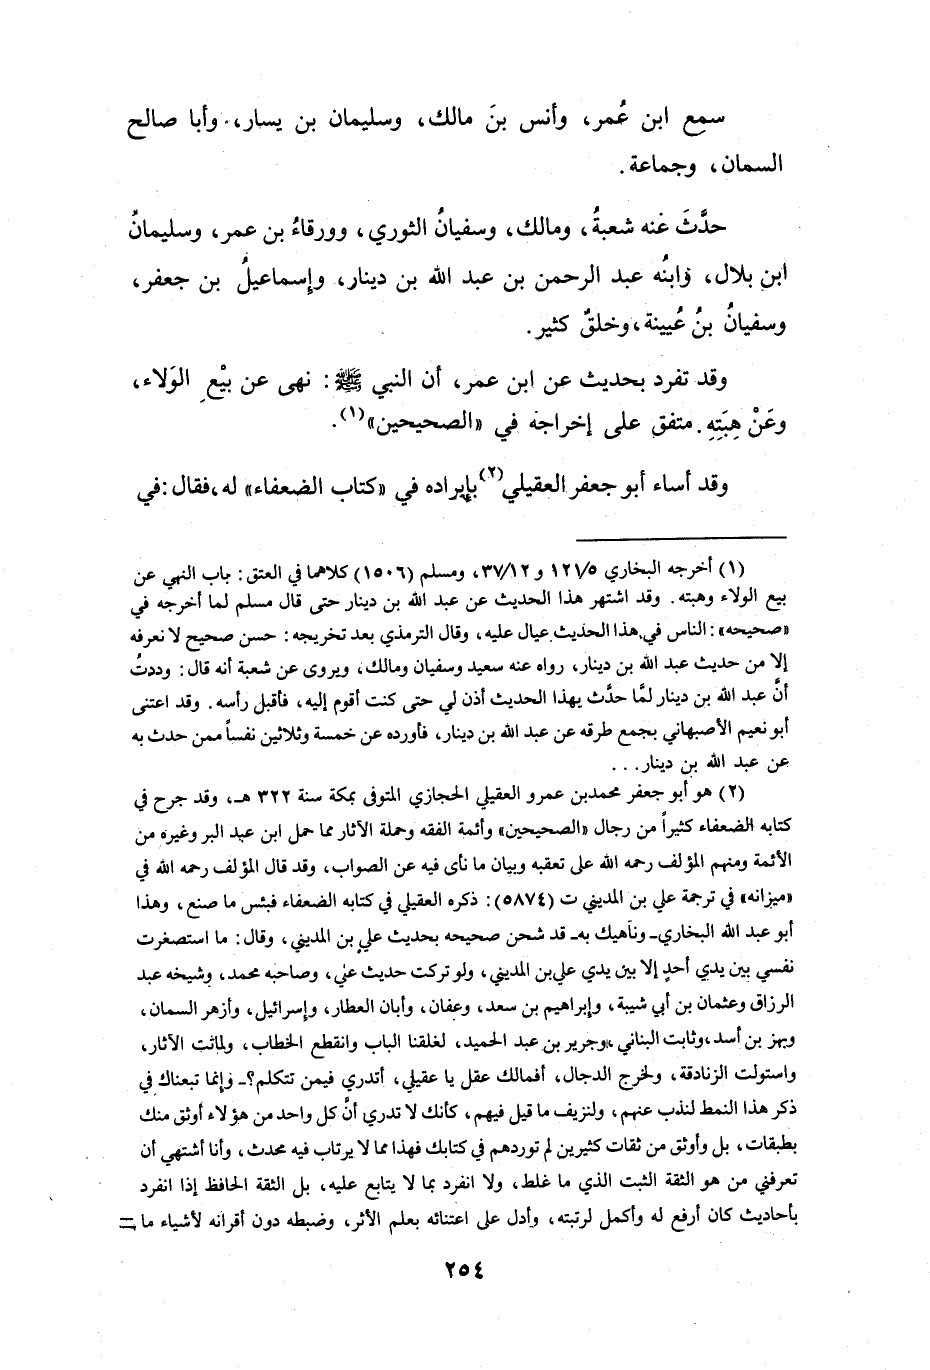 سمع ابن عُمر، وأنس بنَ مالك، وسليمان بن يسار، وأبا صالح
السمان، وجماعة.
حدَّثَ عَنه شعبةُ، ومالك، وسفيانُ الثوري، وورقاءُ بن عمر، وسليمانُ
ابن بلال، وَابنُه عبد الرحمن بن عبد الله بن دينار، وإسماعيلُ بن جعفر،
وسفيانُ بنُ عُيينة، وخلقٌ كثير.
وقد تفرد بحديث عن ابن عمر، أن النبي ﷺ: نهى عن بيْعِ الوَلاء،
وعَنْ هِبَتِهِ. متفق على إخراجه في «الصحيحين»(١).
وقد أساء أبو جعفر العقيلي(٢) بإيراده في «كتاب الضعفاء» له، فقال: في
(١) أخرجه البخاري ١٢١/٥ و ٣٧/١٢، ومسلم (١٥٠٦) كلاهما في العتق: باب النهي عن
بيع الولاء وهبته. وقد اشتهر هذا الحديث عن عبد الله بن دينار حتى قال مسلم لما أخرجه في
«صحيحه»: الناس في هذا الحديث عيال عليه، وقال الترمذي بعد تخريجه: حسن صحيح لا نعرفه
إلا من حديث عبد الله بن دينار، رواه عنه سعيد وسفيان ومالك، ويروى عن شعبة أنه قال: وددتُ
أنَّ عبد الله بن دينار لمَّا حدَّث بهذا الحديث أذن لي حتى كنت أقوم إليه، فأقبل رأسه. وقد اعتنى
أبو نعيم الأصبهاني بجمع طرقه عن عبد الله بن دينار، فأورده عن خمسة وثلاثين نفساً ممن حدث به
عن عبد الله بن دينار...
(٢) هو أبو جعفر محمد بن عمرو العقيلي الحجازي المتوفى بمكة سنة ٣٢٢ هـ، وقد جرح في
كتابه الضعفاء كثيراً من رجال «الصحيحين» وأئمة الفقه وحملة الآثار مما حمل ابن عبد البر وغيره من
الأئمة ومنهم المؤلف رحمه الله على تعقبه وبيان ما نأى فيه عن الصواب، وقد قال المؤلف رحمه الله في
«ميزانه» في ترجمة علي بن المديني ت (٥٨٧٤): ذكره العقيلي في كتابه الضعفاء فبئس ما صنع، وهذا
أبو عبد الله البخاري ـ وناهيك به ـ قد شحن صحيحه بحديث علي بن المديني، وقال: ما استصغرت
نفسي بين يدي أحدٍ إلا بين يدي علي بن المديني، ولو تركت حديث علي، وصاحبه محمد، وشيخه عبد
الرزاق وعثمان بن أبي شيبة، وإبراهيم بن سعد، وعفان، وأبان العطار، وإسرائيل، وأزهر السمان،
وبهز بن أسد، وثابت البناني، وجرير بن عبد الحميد، لغلقنا الباب وانقطع الخطاب، ولماتت الآثار،
واستولت الزنادقة، ولخرج الدجال، أفمالك عقل يا عقيلي، أتدري فيمن تتكلم؟ ـ وإنما تبعناك في
ذكر هذا النمط لنذب عنهم، ولنزيف ما قيل فيهم، كأنك لا تدري أنَّ كل واحد من هؤلاء أوثق منك
بطبقات، بل وأوثق من ثقات كثيرين لم توردهم في كتابك فهذا مما لا يرتاب فيه محدث، وأنا أشتهي أن
تعرفني من هو الثقة الثبت الذي ما غلط، ولا انفرد بما لا يتابع عليه، بل الثقة الحافظ إذا انفرد
بأحاديث كان أرفع له وأكمل لرتبته، وأدل على اعتنائه بعلم الأثر، وضبطه دون أقرانه لأشياء ما =
٢٥٤